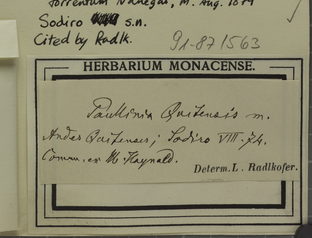 torrentum Nanegal, M. Aug. 1874
Sodiro s.n.
Cited by Radlk.
91-87/563
HERBARIUM MONACENSE.
Paullinia Quitensis m.
Andes Quitenses; Sodiro VIII. 74.
Comm. ex M. Haynald.
Determ. L. Radlkofer.